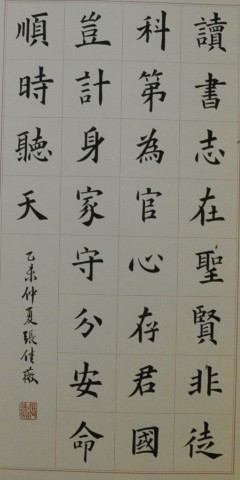 讀書志在聖賢非徒
科第為官心存君國
豈計身家守分安命
順時聽天
乙未仲夏張佳薇